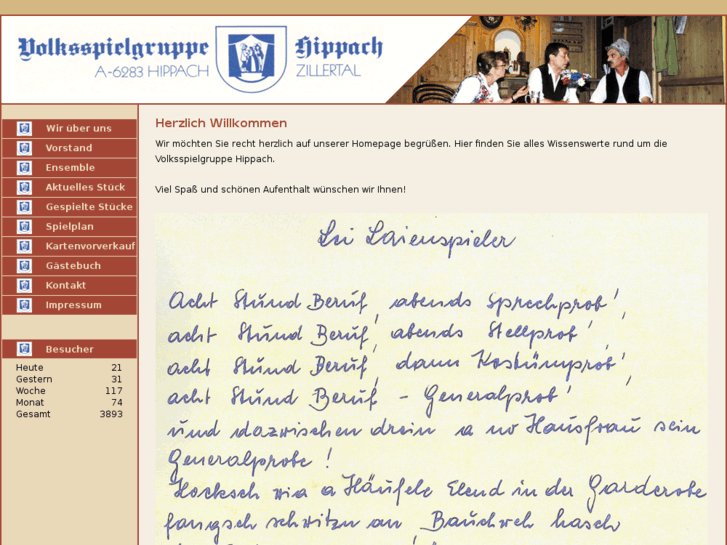 Volksspielgruppe Hippach
A-6283 HIPPACH ZILLERTAL
Wir über uns
Vorstand
Ensemble
Aktuelles Stück
Gespielte Stücke
Spielplan
Kartenvorverkauf
Gästebuch
Kontakt
Impressum
Besucher
Heute 21
Gestern 31
Woche 117
Monat 74
Gesamt 3893
Herzlich Willkommen
Wir möchten Sie recht herzlich auf unserer Homepage begrüßen. Hier finden Sie alles Wissenswerte rund um die
Volksspielgruppe Hippach.
Viel Spaß und schönen Aufenthalt wünschen wir Ihnen!
Laienspieler
Acht Stund Beruf, abends Sprechprob',
acht Stund Beruf, abends Stellprob',
acht Stund Beruf, dann Kostümprob',
acht Stund Beruf - Generalprob'
und dazwischen drein a no Hausfrau sein
Generalprobe!
Hocksch wia a Häufele Elend in der Garderobe
fangsch schwitzn an, Bauchweh hasch